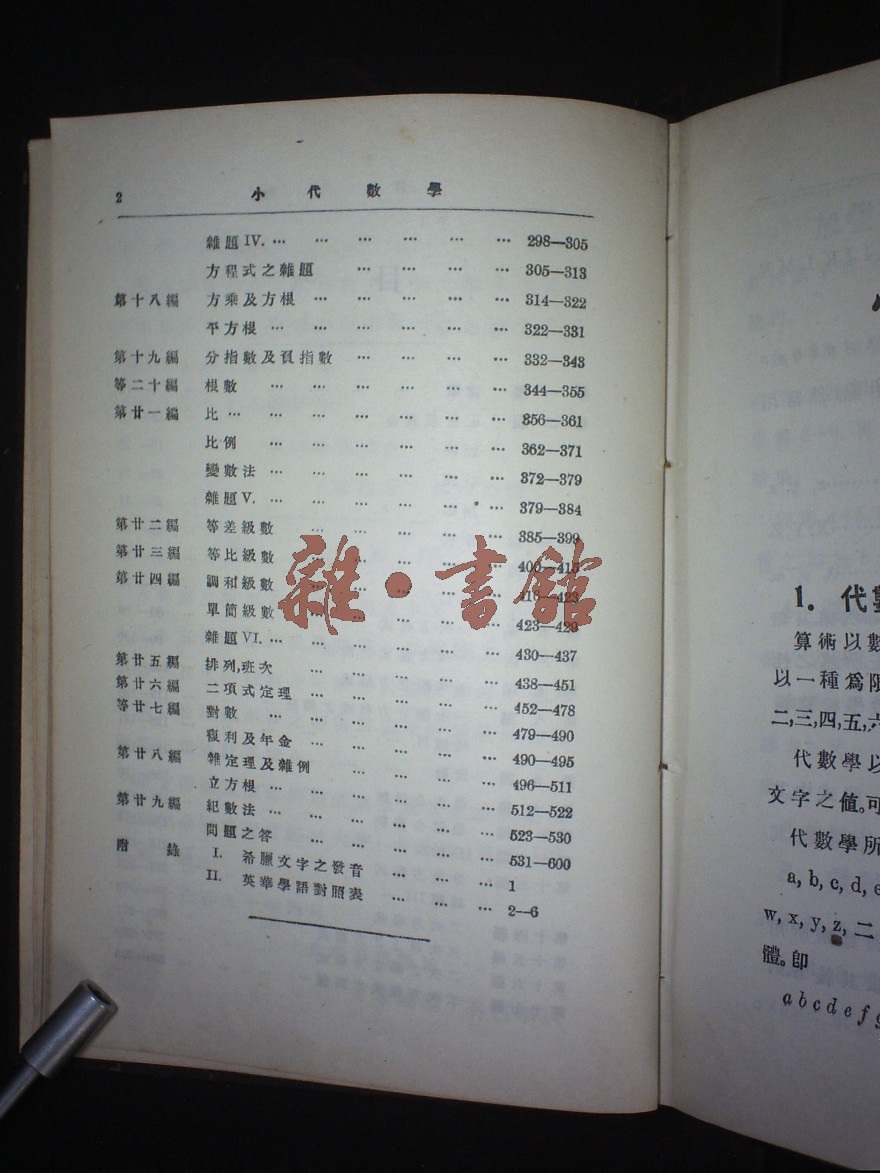 2 小代數學
雜題IV. … … … … … … 298—305
方程式之雜題 … … … … 305—313
第十八編 方乘及方根 … … … … … 314—322
平方根 … … … … … … 322—331
第十九編 分指數及負指數 … … … … 332—343
等二十編 根數 … … … … … … 344—355
第廿一編 比 … … … … … … … 356—361
比例 … … … … … … 362—371
變數法 … … … … … … 372—379
雜題V. … … … … … … 379—384
第廿二編 等差級數 … … … … … 385—399
第廿三編 等比級數 … … 400—415
第廿四編 調和級數 416—423
單簡級數 423—429
雜題VI. … … … … … … 430—437
第廿五編 排列,班次 … … … … … 438—451
第廿六編 二項式定理 … … … … … 452—478
等廿七編 對數 … … … … … … 479—490
複利及年金 … … … … … 490—495
第廿八編 雜定理及雜例 … … … … 496—511
立方根 … … … … … … 512—522
第廿九編 紀數法 … … … … … … 523—530
問題之答 … … … … … 531—600
附錄 I. 希臘文字之發音 … … … 1
II. 英華學語對照表 … … … 2—6
雜·書館
1. 代數
算術以數
以一種爲限
二,三,四,五,六
代數學以
文字之值。可
代數學所
a, b, c, d, e
w, x, y, z, 二
體。卽
a b c d e f g